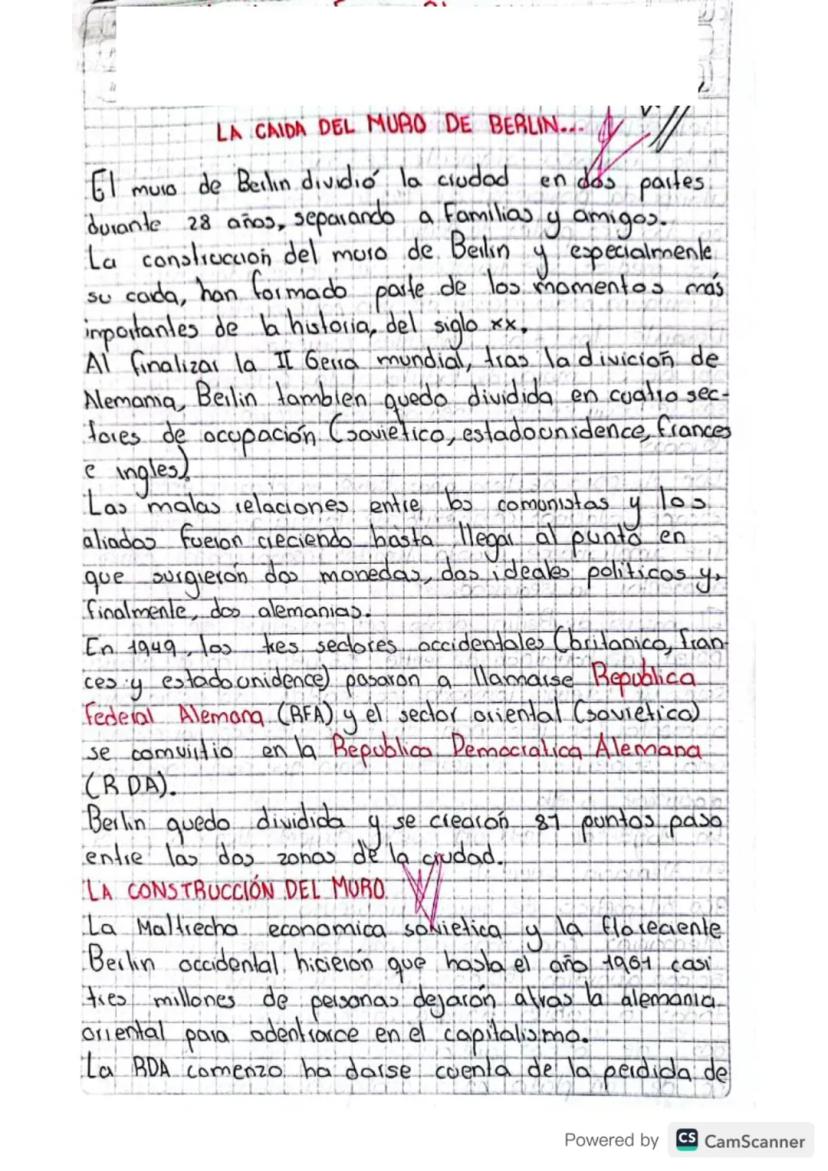 LA CAIDA DEL MURO DE BERLIN...
El muro de Berlin dividió la ciudad en dos partes
durante 28 años, separando a Familias y amigos.
La construccion del muro de Berlin y especialmente
su caida, han formado parte de los momentos más
importantes de la historia, del siglo xx.
Al finalizar la II Gerra mundial, tras la divicion de
Alemania, Berlin tambien quedo dividida en cuatro sec-
tores de ocupación (sovietico, estadounidence, frances
e ingles).
Las malas relaciones entre los comunistas y los
aliados fueron creciendo hasta llegar al punto en
que surgieron dos monedas, dos ideales politicos y,
finalmente, dos alemanias.
En 1949, los tres sectores occidentales (britanico, fran-
ces y estadounidence) pasaron a llamarse Republica
Federal Alemana (RFA) y el sector oriental (sovietico)
se comvirtio en la Republica Democratica Alemana
(RDA).
Berlin quedo dividida y se crearon 81 puntos paso
entre las dos zonas de la ciudad.
LA CONSTRUCCIÓN DEL MURO
La Maltrecha economica sovietica y la floreciente
Berlin occidental hicieron que hasta el año 1961 casi
tres millones de personas dejaron atras la alemania
oriental para adentrarce en el capitalismo.
La RDA comenzo ha darse cuenta de la perdida de
Powered by CS CamScanner